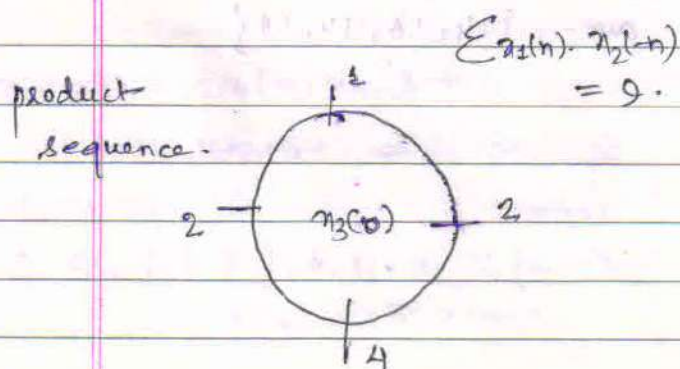 Σx₁(n). x₂(-n)
= 9.
product
sequence.
1
2
x₃(0)
2
4